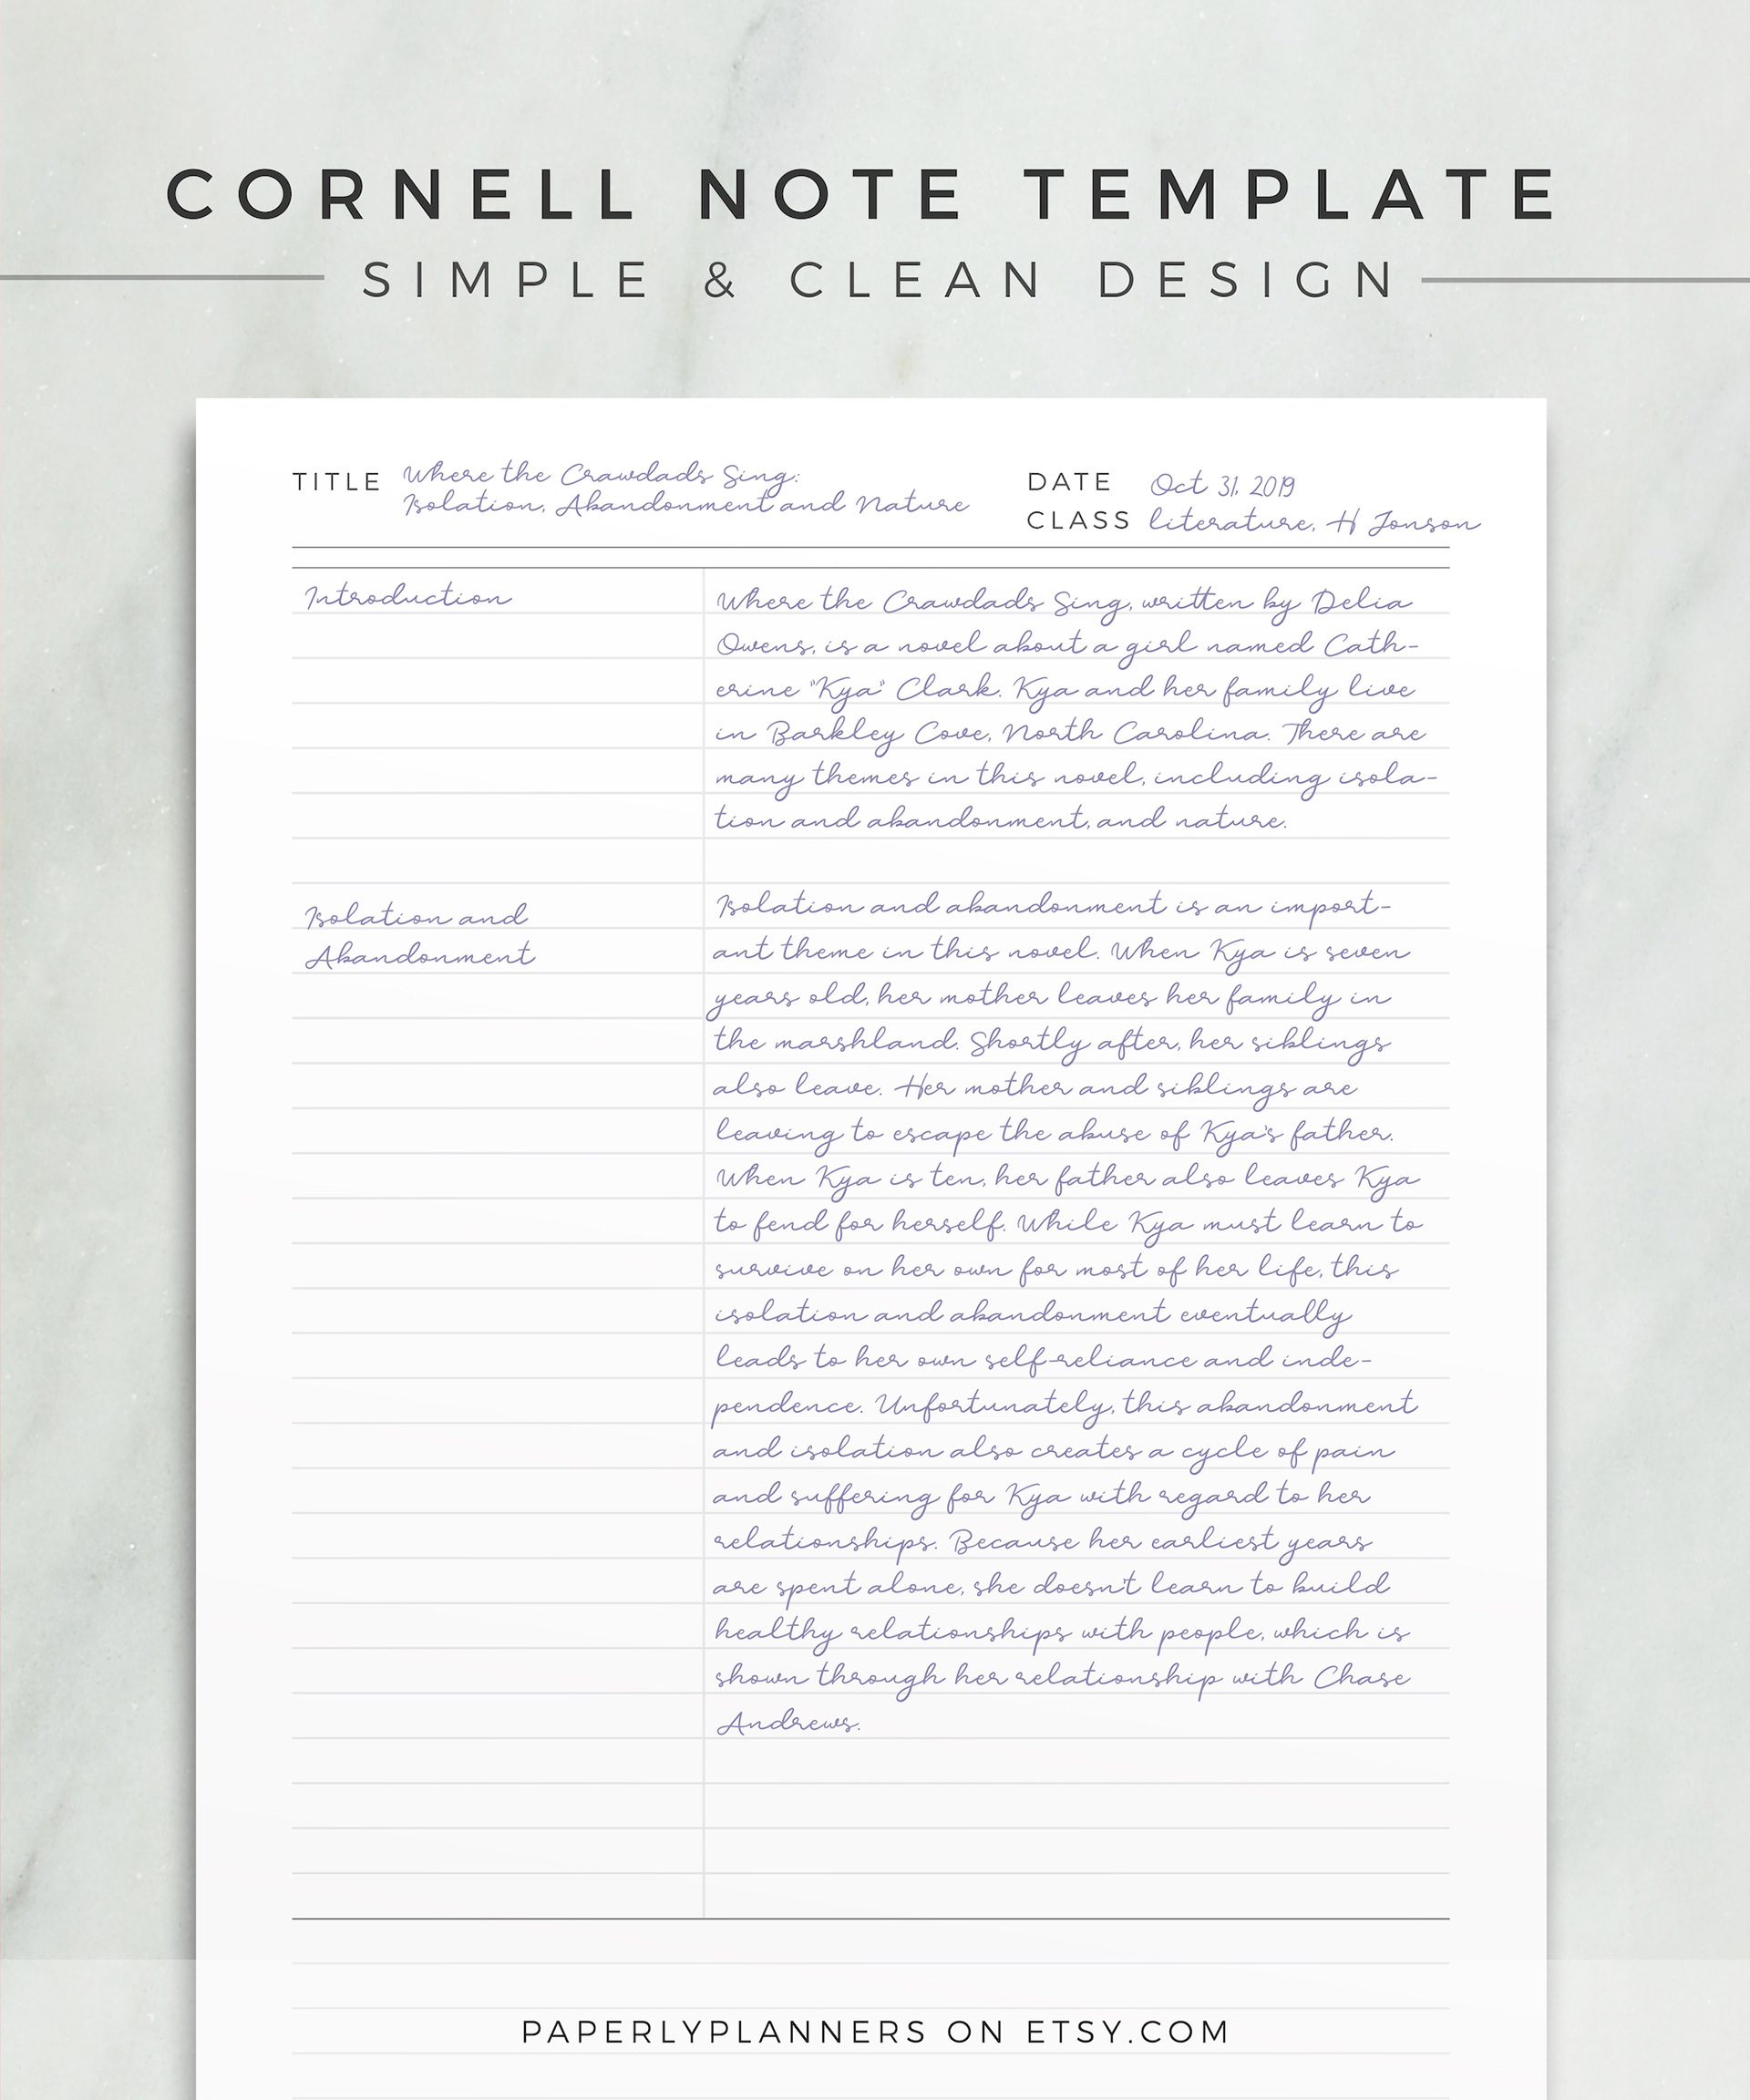 CORNELL NOTE TEMPLATE
SIMPLE & CLEAN DESIGN
TITLE Where the Crawdads Sing:
Isolation, Abandonment and Nature
DATE Oct 31, 2019
CLASS literature, H Jonson
Introduction
Where the Crawdads Sing, written by Delia
Owens, is a novel about a girl named Cath-
erine "Kya" Clark. Kya and her family live
in Barkley Cove, North Carolina. There are
many themes in this novel, including isola-
tion and abandonment, and nature.
Isolation and
Abandonment
Isolation and abandonment is an import-
ant theme in this novel. When Kya is seven
years old, her mother leaves her family in
the marshland. Shortly after, her siblings
also leave. Her mother and siblings are
leaving to escape the abuse of Kya's father.
When Kya is ten, her father also leaves Kya
to fend for herself. While Kya must learn to
survive on her own for most of her life, this
isolation and abandonment eventually
leads to her own self-reliance and inde-
pendence. Unfortunately, this abandonment
and isolation also creates a cycle of pain
and suffering for Kya with regard to her
relationships. Because her earliest years
are spent alone, she doesn't learn to build
healthy relationships with people, which is
shown through her relationship with Chase
Andrews.
PAPERLYPLANNERS ON ETSY.COM